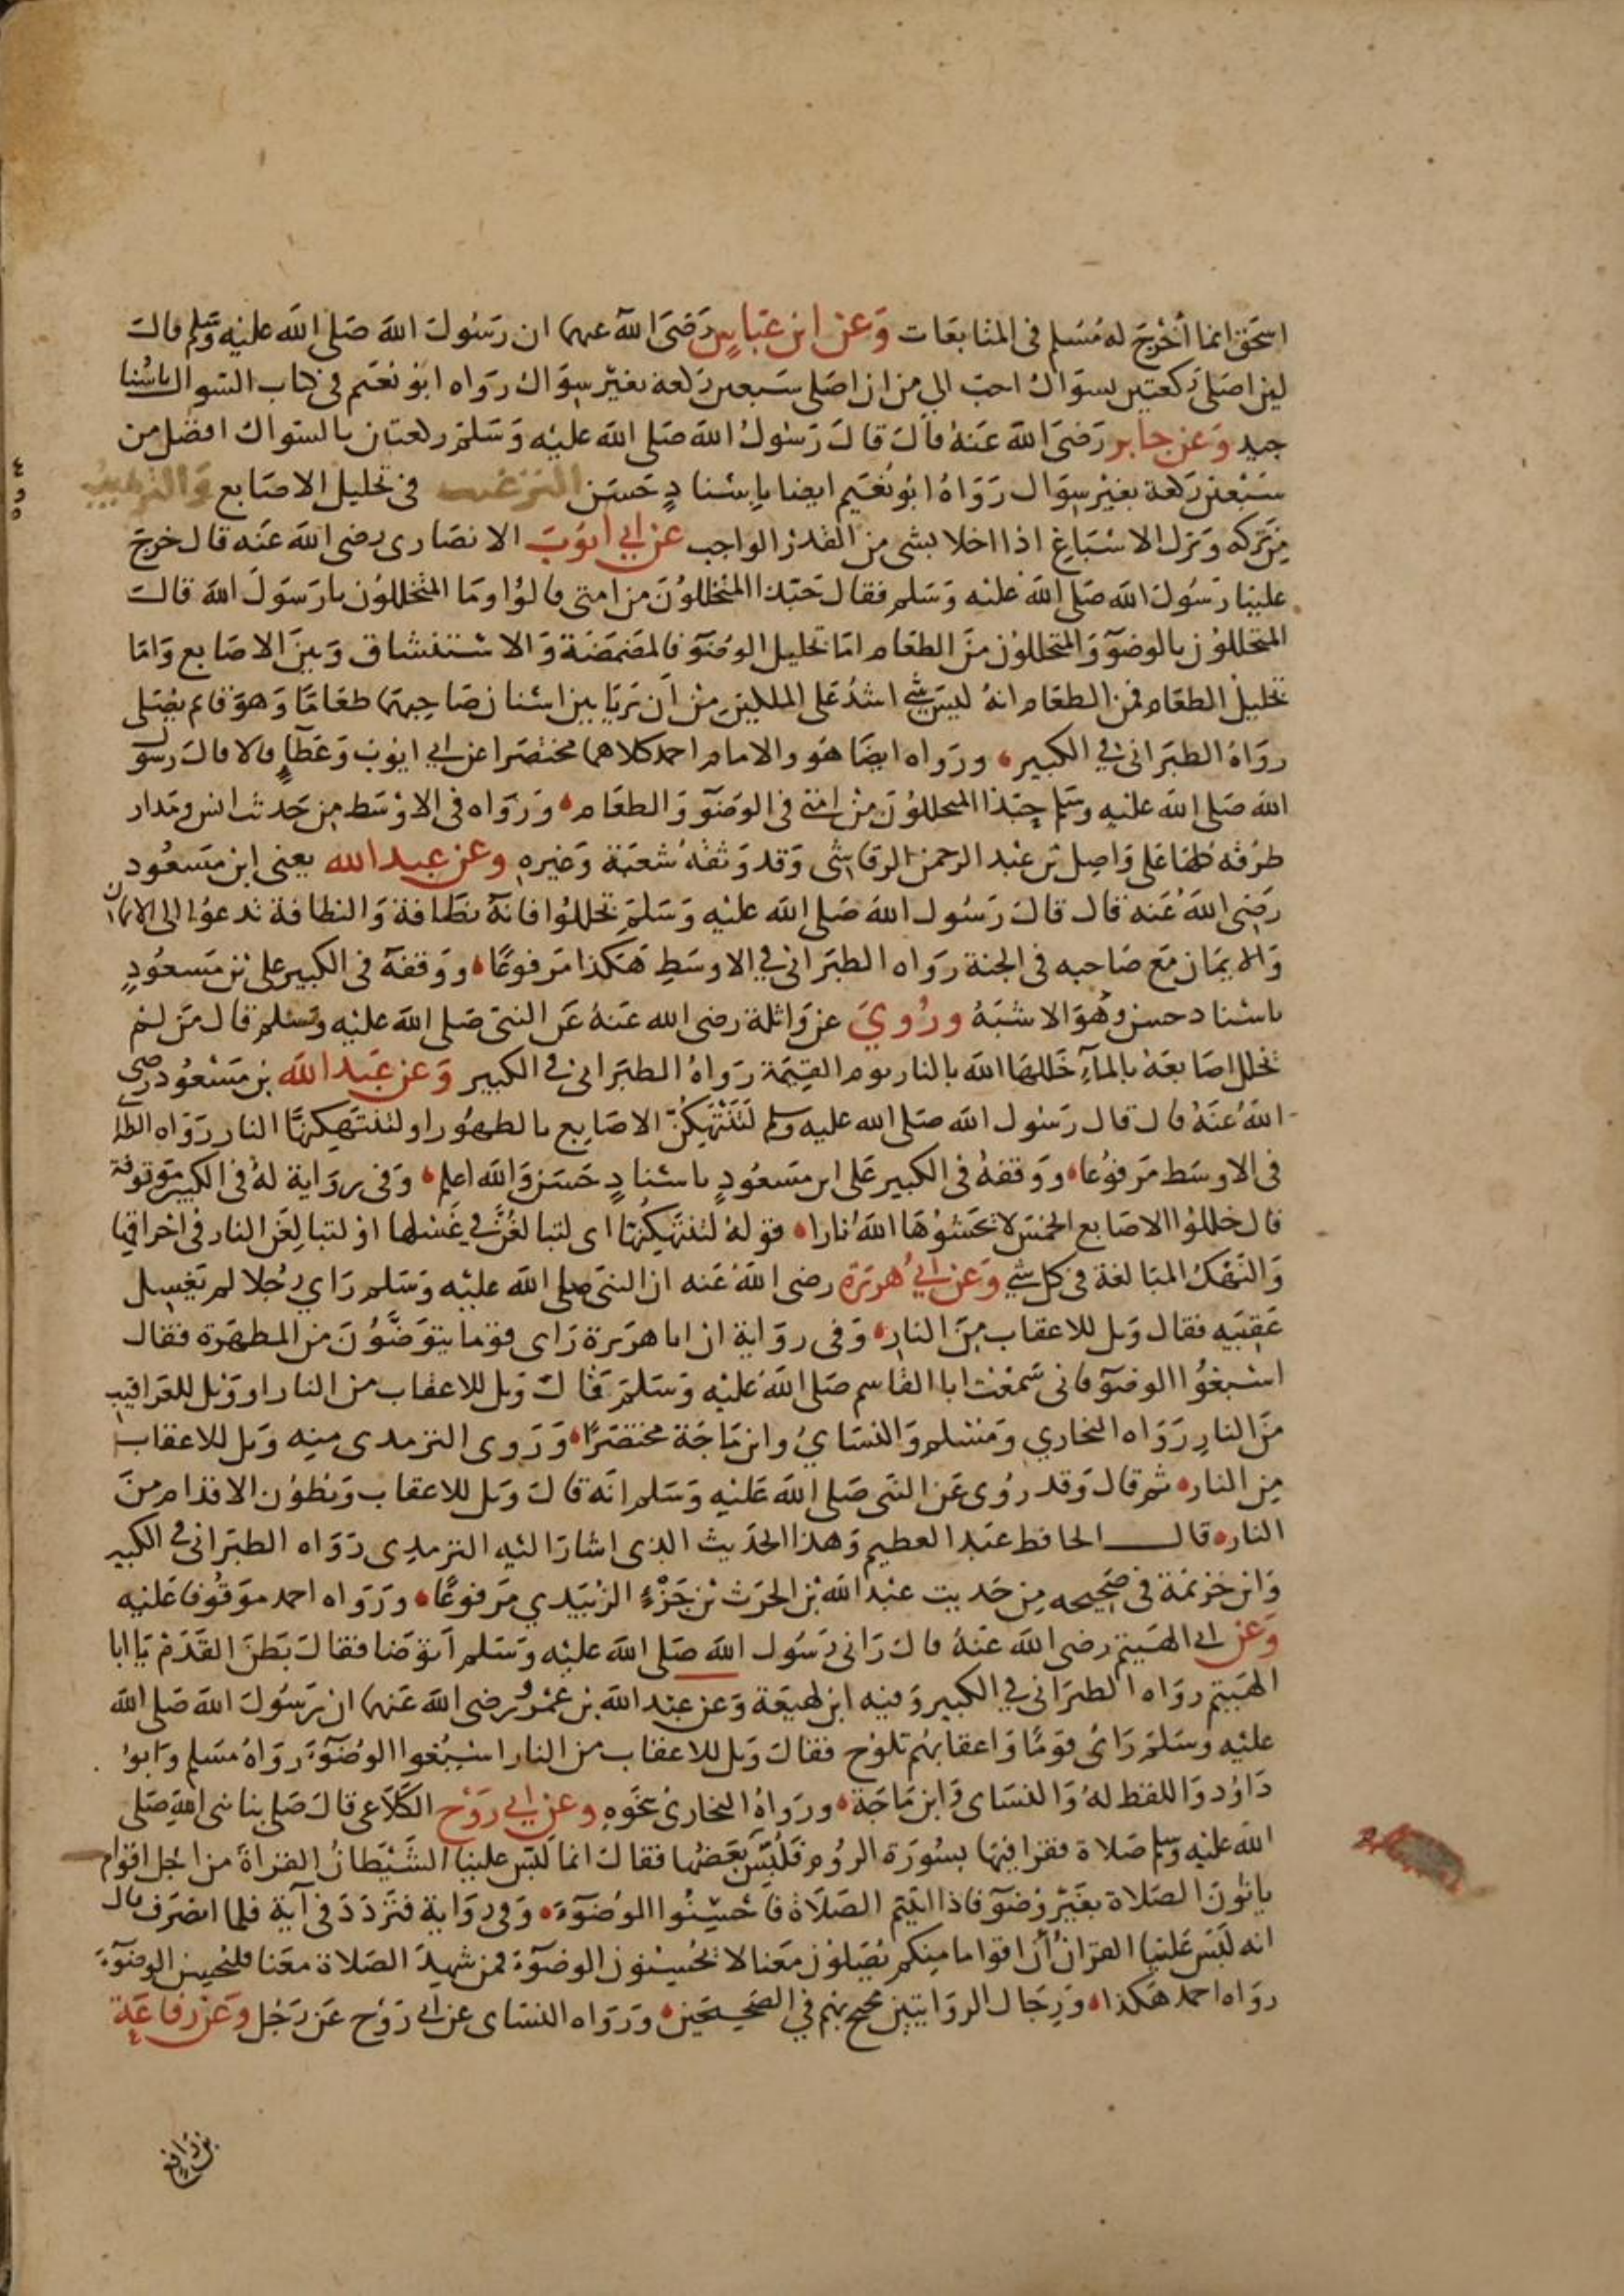 اسحق انما أخْرجَ له مُسْلم فى المتابعَات وَعن ابن عَبّاسٍ رَضىَ الله عنهما ان رَسُولَ الله صَلى الله عليه وَسَلم قالَ
لين اصَلى رَكعتين بسوَاك احبّ الي من ان اصَلى سَبعين رَكعة بغيْر سِوَاك رَوَاه ابو نُعَيم فى كتاب السّواك باسْنا
جيد وَعن جابر رَضىَ الله عَنهُ قالَ قالَ رَسُولُ الله صَلى الله عليْه وَسَلمَ ركعتان بالسّواك افضل من
سَبْعين رَكعة بغيْر سِوَاك رَوَاهُ ابو نُعَيم ايضا بإسْنادٍ حَسَن الترغيب فى تخليل الاصَابع وَالترهيب
مِن تركه وَترك الاسْبَاغ اذا اخلا بشى من القَدر الواجب عن ابي ايوبَ الانصَارى رضى الله عَنه قال خرجَ
علينا رَسُولُ الله صَلى الله عليْه وَسَلم فقال حَبّذا المتخللُونَ من امتى قالوُا ومَا المتخللوُن يا رَسوَلَ الله قالَ
المتخللوُن بالوضوٓ وَالمتخللوُن منَ الطعَام امّا تخليل الوضوٓ فالمضمضَة وَالاسْتنشاق وَبينَ الاصَابع وَامّا
تخليلُ الطعَام فمن الطعَام انهُ ليسَ شي اشدُ عَلى الملكين مِنْ أن يَريَا بين اسْنان صَاحِبهمَا طعَامًا وَهوَ قايم يصَلى
روَاهُ الطبَرانى في الكبير ورَواه ايضَا هُو والامام احمد كلاهما مختصَرا عن ابي ايوبَ وَعَطآءٍ قالا قالَ رسوَل
الله صَلى الله عليْه وسَلم حبّذا المتخللوُنَ مِنْ امّتى فى الوضوٓ وَالطعَام وَرَوَاه فى الاوْسَط من حَديث انس ومَدار
طرُقه كلهَا عَلى وَاصِل بن عَبْد الرحمن الرقاشى وَقد وَثقهُ شُعبَة وَغيره وعن عبد الله يعنى ابن مَسعُود
رَضى اللهُ عَنه قال قالَ رَسُول الله صَلى الله عليْه وَسَلمَ تخللوُا فانهَ نظَافة وَالنظافة تدعوُا الى الايمان
وَالايمَان مَع صَاحبه فى الجنة روَاه الطبَرانى في الاوسَطِ هَكذا مَرفوعًا ووَقفهَ فى الكبير على بن مَسعُودٍ
باسْناد حسن وهُوَ الاشبَهُ ورُويَ عن وَاثلة رضى الله عَنهُ عَن النبىّ صَلى الله عليْه وَسَلم قال مَن لمْ
يخلل اصَابعَهُ بالمآءِ خَللهَا الله بالنار يوم القيٰمَة رَواهُ الطبَرانى فى الكبير وَعن عَبد الله بن مَسْعُود رضى
اللهُ عَنهُ قال قال رَسُول الله صَلى الله عليه وسلم لَتَنْتَهِكُنّ الاصَابِع بالطهُور او لتنتهكنهَّا النار رَوَاه الطبر
فى الاوسَط مَرفوُعا ووَقفهُ فى الكبير عَلى ابن مسَعُودٍ باسْنادٍ حَسَن وَالله اعلم وَفى روَاية لهُ فى الكبير مَوقوفة
قال خللوُا الاصَابع الخمسَ لا يحَشُوهَا اللهُ نارا قولهُ لتنتهِكُنهّا اى لتبالغُنّ فى غَسْلها اوْ لتبالِغَن النار فى احراقها
وَالنهْك المبَالغة فى كل شي وَعن ابي هُريَرَة رضى الله عَنه ان النبىّ صلى الله عليْه وَسَلم رَاي رجُلا لم يَغسِل
عَقِبَيه فقال وَيل للاعقاب مِنَ النار وَفى روَاية ان ابا هريَرة رَاى قوما يتوَضَّوُنَ من المطهَرة فقال
اسْبغُوا الوضوٓ فانى سَمعْت ابا القاسم صَلى اللهُ عليْه وَسَلمَ قالَ وَيل للاعقاب من النار او وَيل للعَراقيب
منَ النارِ رَوَاه البخاري وَمسْلم وَالنسَايُ وابن مَاجَة مختصَرًا وَرَوى الترمدى منِه وَيل للاعقاب
مِن النار ثم قال وَقد رُوى عَن النبى صَلى الله عَليْه وَسَلم انَه قالَ وَيل للاعقاب وَبطوُن الاقدام منَ
النار قال الحافظ عبَد العظيم وَهذا الحَديث الذى اشارَ اليْه الترمدِى رَوَاه الطبَرانى فى الكبير
وَابن خزيمَة فى صَحيحه مِن حَديث عبْد الله بن الحرَث بْن جَزْءٍ الزبَيَدي مَرفوعًا ورَوَاه احمد موَقُوفا عَليْه
وَعن ابى الهَيتم رضى الله عَنهُ قالَ رَانى رَسُول الله صَلى الله عليْه وَسَلم اَتوَضا فقالَ بَطنَ القَدَمْ يَا ابا
الهَيتم روَاه الطبَرانى في الكبير وَفيه ابن لهيعَة وَعن عبْد الله بن عَمْرو رضى الله عَنهما ان رَسُولَ الله صَلى الله
عليْه وسَلمَ رَاىُ قوَمًا وَاعقابهُم تلوُح فقالَ وَيل للاعقاب من النار اسْبُغوا الوُضوٓءَ رَوَاهُ مسَلم وَابوُ
دَاوُد وَاللفظ لهُ وَالنسَاى وَابن مَاجَة ورَوَاهُ البخارىُ نحَوه وعن ابي رَوْح الكَلاَعى قالَ صَلى بنا نبى اللهَ صَلى
الله عليْه وسَلم صَلاة فقرا فيهَا بسُورَة الروُم فَلُبّسَ بَعَضهُا فقالَ انما لَبّس علينَا الشَّيْطانُ القراةَ من اجْل اقوام
ياتونَ الصَلاة بغَيْر وُضوٓ فاذا اتيتم الصَلاَة فاحْسِنُوا الوُضوٓءَ وَفى رَوَاية فترَدَدَ فى آية فلما انصَرَف قال
انه لَبَسَ عَلينَا القرانُ أن اقواما مِنكم يُصَلون معَنا لا يحُسِنون الوضوٓءَ فمن شهِدَ الصَلاة معَنا فليحْسِن الوضوٓءَ
روَاه احمد هَكذا وَرِجَال الروَايتين محتج بهم في الصَحيحَين وَرَوَاه النسَاى عن ابى رَوْح عَن رَجُل وَعَن رفاعَة
بن رَافع